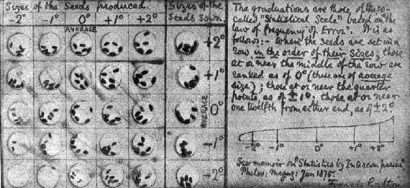 Sizes of the Seeds produced.
-2° -1° 0° +1° +2°
AVERAGE
Sizes of the Seeds Sown.
+2°
+1°
0°
AVERAGE
-1°
-2°
The graduations are those of the so-
called "Statistical Scale" based on the
law of frequency of Error". It is as
follows:- Where the seeds are set in a
row in the order of their sizes, those
at or near the middle of the row are
ranked as of 0° (these are of average
size); those at or near the quarter
points as of ±1°, those at or near
one twelfth from either end, as of ±2°
-2° -1° 0° +1° +2°
See memoir on "Statistics by Intercomparison"
Philos: Magaz: Jan 1875.